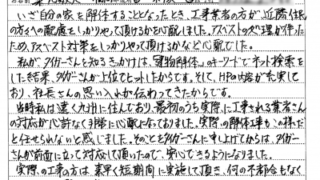 いざ自分の家を解体することとなったとき、工事業者の方が近隣住
の方々への配慮をしっかりやって頂けるか心配しました。アスベストの処理が伴った
ため、アスベスト対策をしっかりやって頂けるかなど心配でした。
私が、タイガーさんを知るきっかけは、「建物解体」のキーワードでネット検索をし
た結果、タイガーさんが上位でヒットしたからです。そして、HPの内容が充実して
おり、社長さんの思い入れが伝わってきたからです。
当時私は遠く九州に住んでおり、最初のうち実際に工事される業者さん
の対応が心許なく非常に心配になっておりました。実際の解体工事もこの様だ
と任せられないと感じました。そのことをタイガーさんに申し上げてからは、タイガーさ
んが前面に立って対応して頂いたので、安心できるようになりました。
実際の工事の方は素早く短期間に実施して頂き、何の不都合もなく